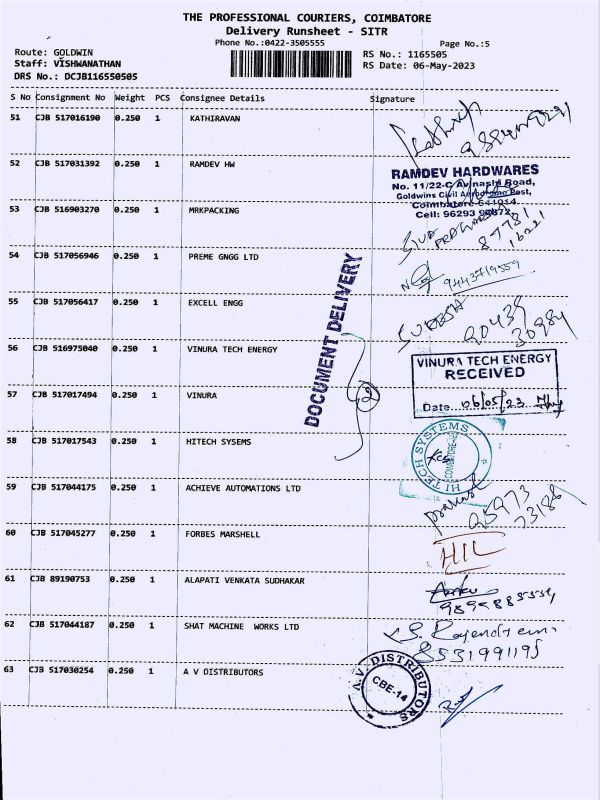 THE PROFESSIONAL COURIERS, COIMBATORE
Delivery Runsheet - SITR
Phone No.:0422-3505555 Page No.:5
Route: GOLDWIN RS No.: 1165505
Staff: VISHWANATHAN RS Date: 06-May-2023
DRS No.: DCJB116550505
S No Consignment No Weight PCS Consignee Details Signature
51 CJB 517016190 0.250 1 KATHIRAVAN
52 CJB 517031392 0.250 1 RAMDEV HW
RAMDEV HARDWARES
No. 11/22-C Avinashi Road,
Goldwins Civil Aerodrome Post,
Coimbatore 641014
Cell: 96293
53 CJB 516903270 0.250 1 MRKPACKING
87781
16221
54 CJB 517056946 0.250 1 PREME GNGG LTD
9443719559
55 CJB 517056417 0.250 1 EXCELL ENGG
SURESH
90439
30984
DOCUMENT DELIVERY
56 CJB 516975040 0.250 1 VINURA TECH ENERGY
VINURA TECH ENERGY
RECEIVED
Date. 06/05/23
57 CJB 517017494 0.250 1 VINURA
2
58 CJB 517017543 0.250 1 HITECH SYSEMS
HI TECH SYSTEMS
COIMBATORE
59 CJB 517044175 0.250 1 ACHIEVE AUTOMATIONS LTD
95973
73186
60 CJB 517045277 0.250 1 FORBES MARSHELL
HIL
61 CJB 89190753 0.250 1 ALAPATI VENKATA SUDHAKAR
62 CJB 517044187 0.250 1 SHAT MACHINE WORKS LTD
8531991195
63 CJB 517030254 0.250 1 A V DISTRIBUTORS
A.V. DISTRIBUTORS
CBE-14